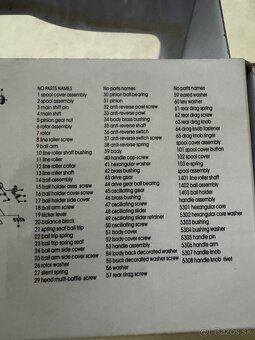 NO PARTS NAMES
1 spool cover assembly
2 spool assembly
3 main shift pin
4 main shift
5 pinion gear nut
6 rotor assembly
7 rotor
8 line rollers screw
9 ball arm
10 line roller
11 line roller
12 line roller collar
13 line roller
14 ball assembly
15 ball holder cass screw
16 ball holder cover screw
17 ball holder cover
18 ball arm screw
19 kicker lever
20 balance block
21 spring seat ball trip
22 ball trip spring
23 ball trip spring seat
24 ball arm side cover screw
25 ball arm side cover
26 rotor washer
27 silent spring
29 head multi-baffle screw
No parts names
30 pinion ball bearing
31 pinion
32 anti-reverse pawl screw
33 anti-reverse pawl
34 body brass bushing
35 anti-reverse shaft
36 anti-reverse switch
37 anti-reverse switch screw
38 anti-reverse spring
39 body
40 handle cap screw
41 hexagonal gear
42 brass bushing
43 drive gear
44 drive gear ball bearing
45 oscillating gear
46 brass bushing
47 oscillating screw
48 oscillating slider
49 oscillating slider retainer
50 oscillating screw
51 body cover
52 body cover screw
53 handle assembly
54 body back decorated washer
55 body back decorated washer screw
56 washer
57 rear drag screw
No parts names
59 eared washer
60 key washer
61 rear drag spring
62 rear drag screw
63 rear drag knob
64 drag knob fastener
65 drag knob tinger
spool cover assembly
101 spool cover button
102 spool cover
103 e-spring
spool assembly
1401 line roller shaft
1402 ball assembly
1403 ball holder
handle assembly
5301 hexangular core
5302 hexangular core washer
5303 bushing
5304 bushing washer
5305 handle pin
5306 handle arm
5307 handle knob
5308 handle knob rivet